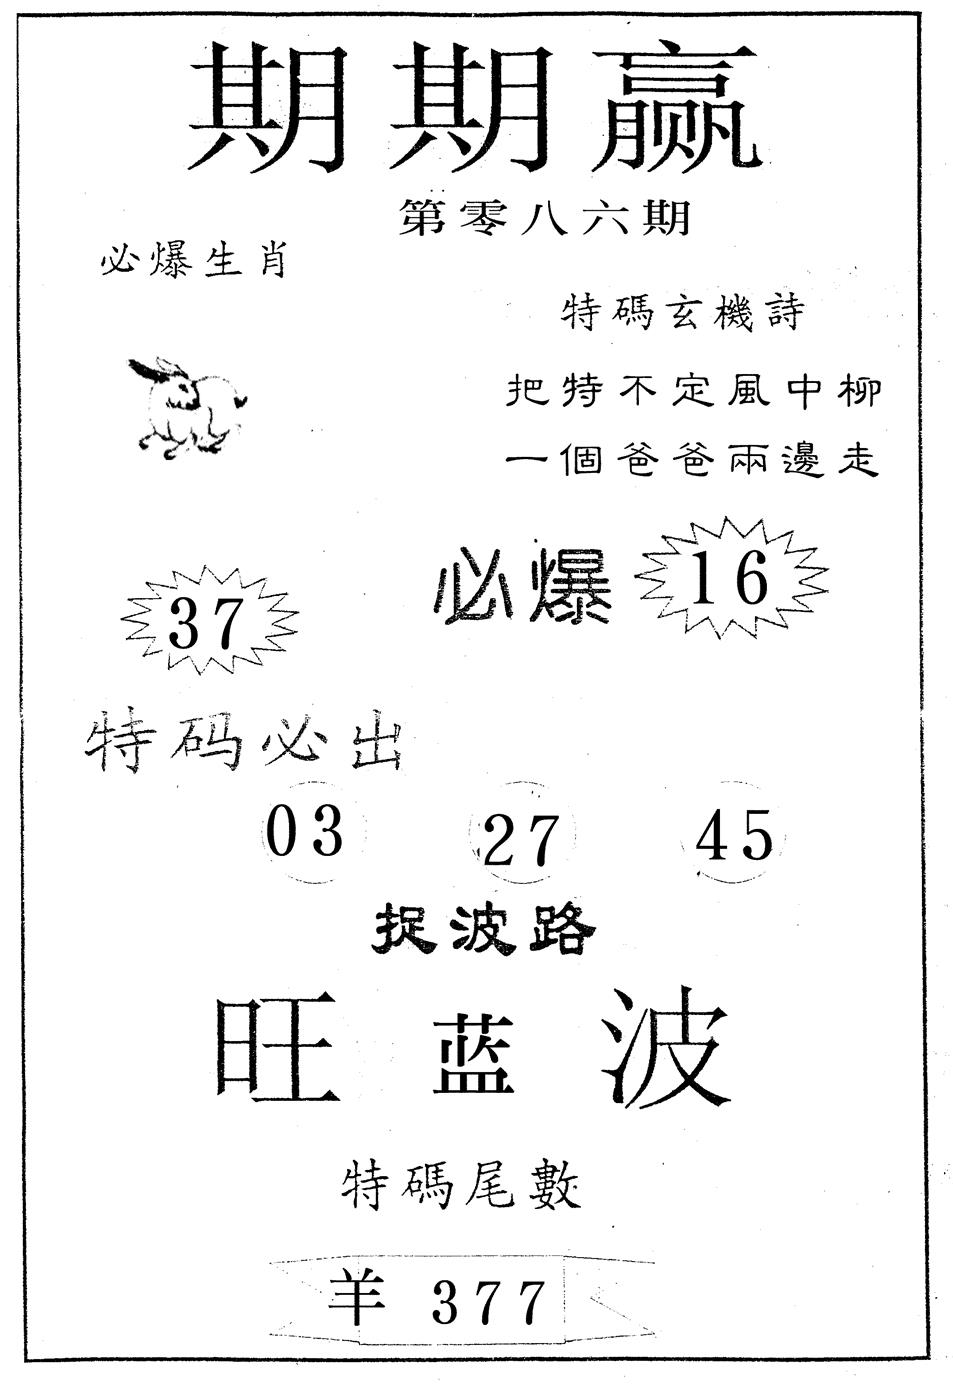 期期赢
第零八六期
必爆生肖
特碼玄機詩
把特不定風中柳
一個爸爸兩邊走
必爆 16
37
特码必出
03 27 45
捉波路
旺蓝波
特碼尾數
羊 377